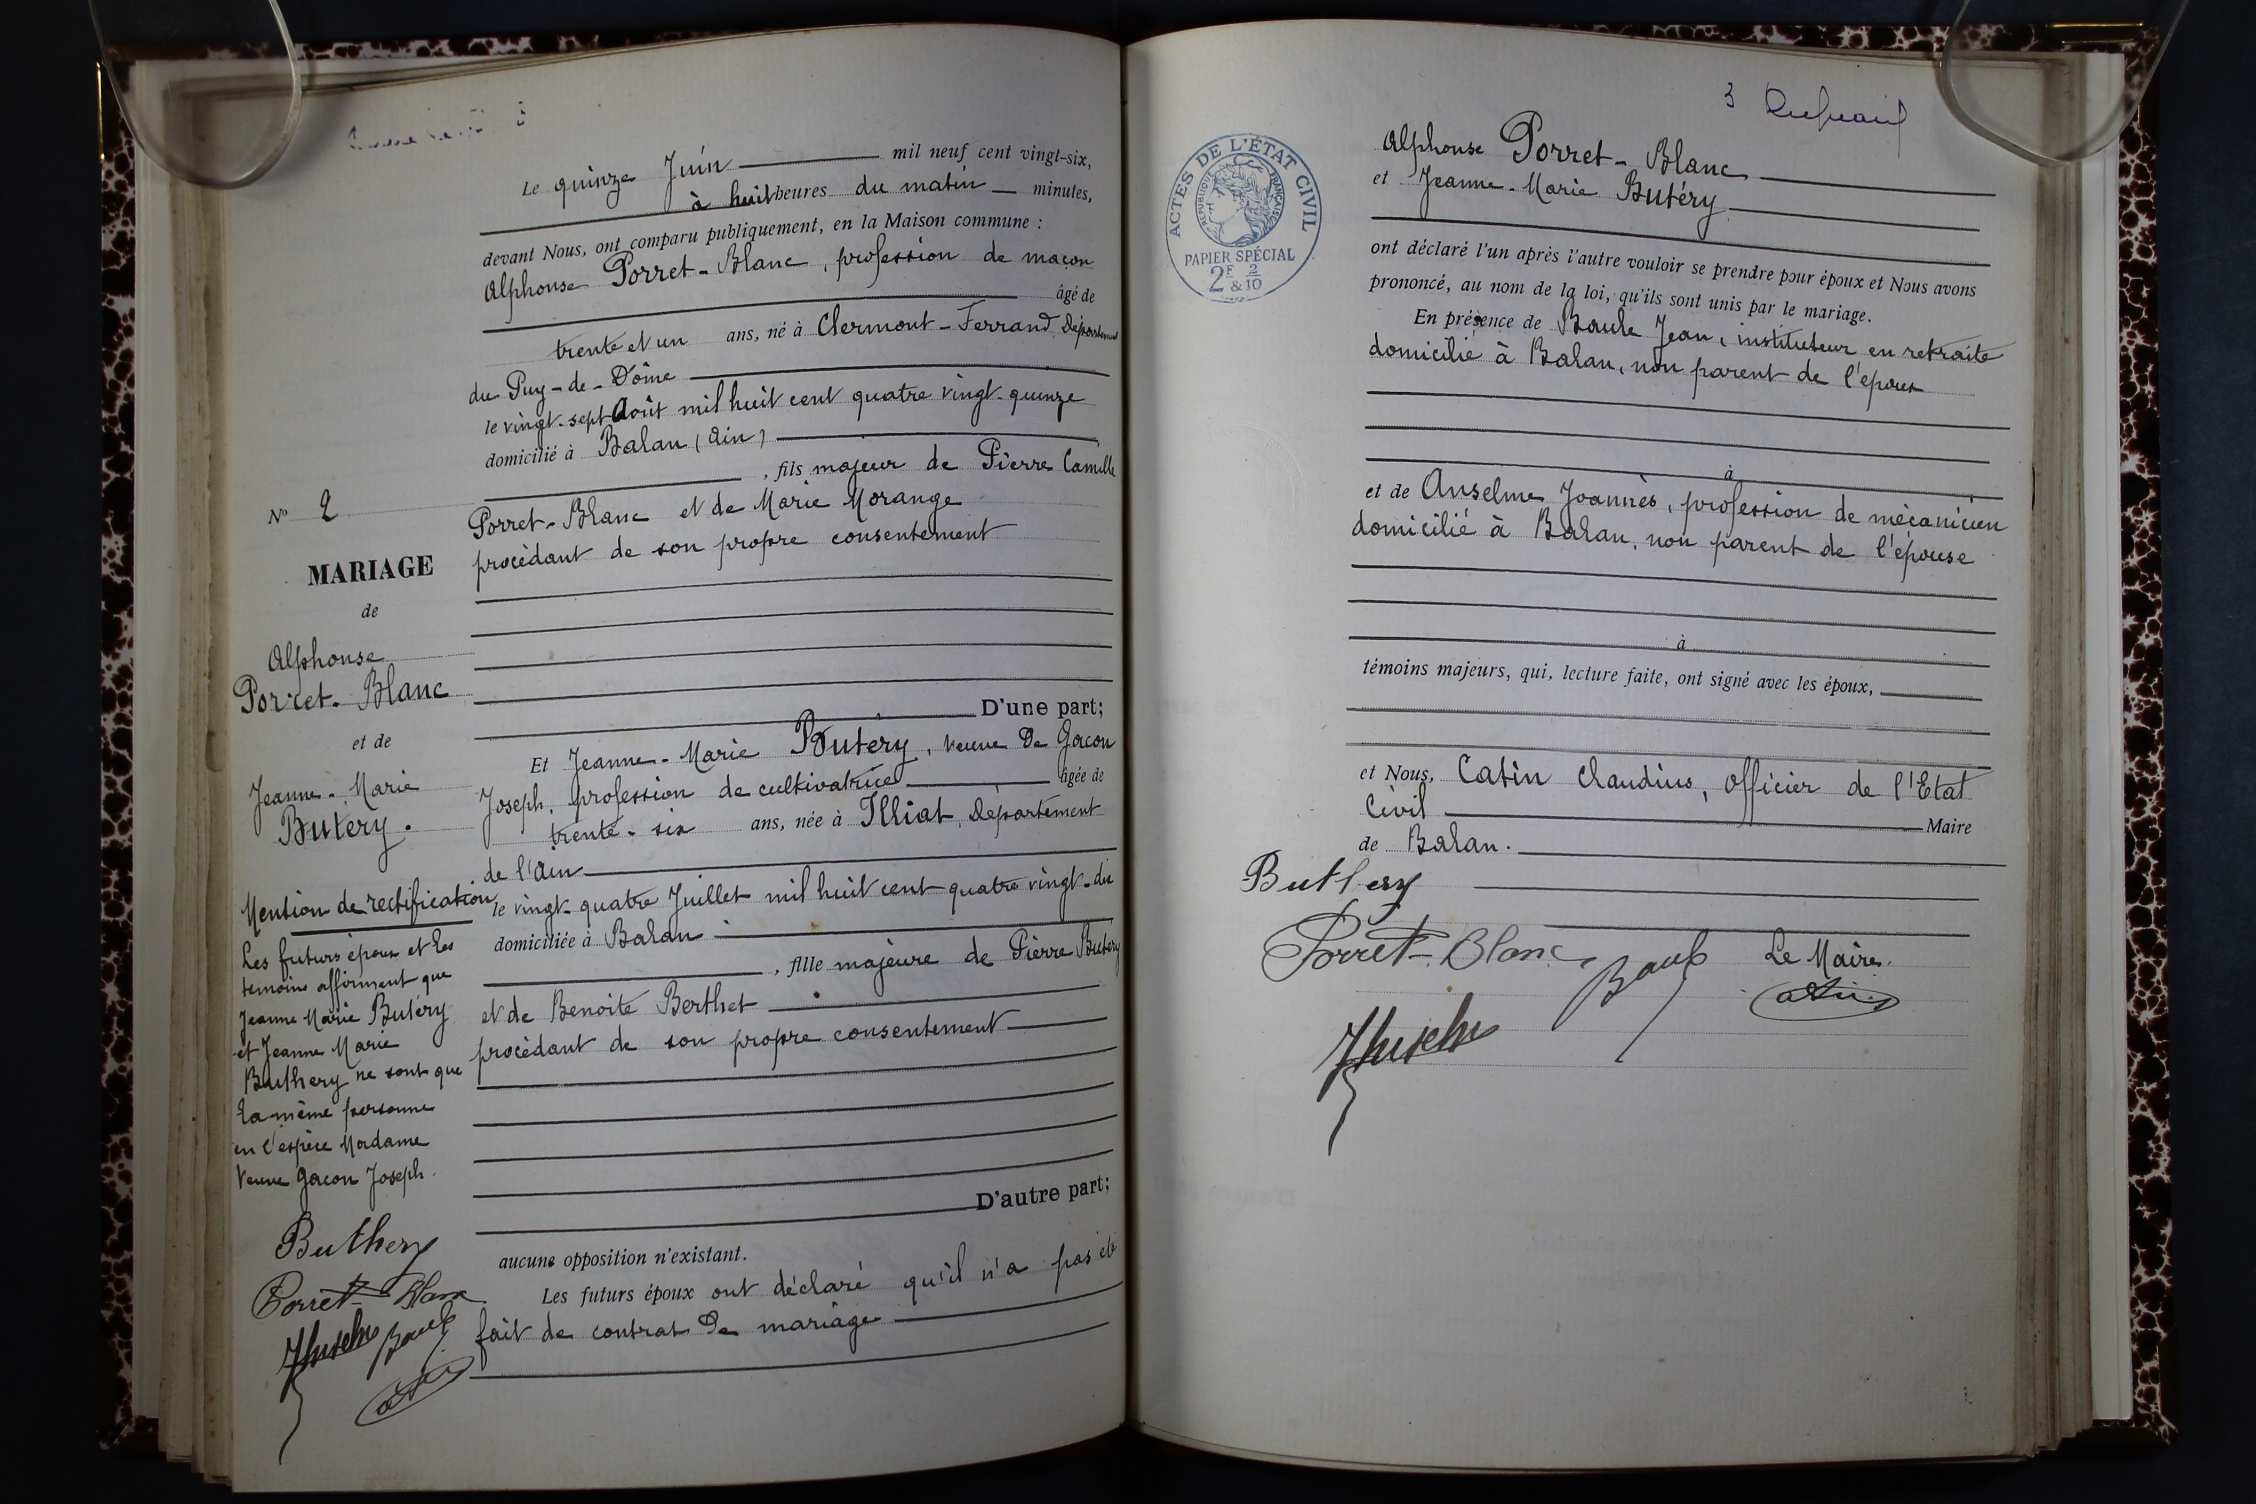 Le quinze Juin mil neuf cent vingt-six,
à huit heures du matin minutes,
devant Nous, ont comparu publiquement, en la Maison commune :
Alphonse Porret-Blanc, profession de maçon
âgé de
trente et un ans, né à Clermont-Ferrand Département
du Puy-de-Dôme
le vingt-sept Août mil huit cent quatre vingt-quinze
domicilié à Balan (Ain)
, fils majeur de Pierre Camille
Porret-Blanc et de Marie Morange
procédant de son propre consentement
D'une part;
Et Jeanne-Marie Butéry, veuve de Gacon
Joseph, profession de cultivatrice âgée de
trente-six ans, née à Illiat, Département
de l'Ain
le vingt-quatre Juillet mil huit cent quatre vingt-dix
domiciliée à Balan
, fille majeure de Pierre Butéry
et de Benoite Berthet
procédant de son propre consentement
D'autre part;
aucune opposition n'existant.
Les futurs époux ont déclaré qu'il n'a pas été
fait de contrat de mariage
N° 2
MARIAGE
de
Alphonse
Porret-Blanc
et de
Jeanne-Marie
Butéry.
Mention de rectification
Les futurs époux et les
témoins affirment que
Jeanne Marie Butéry
et Jeanne Marie
Buthery ne sont que
la même personne
en l'espèce Madame
Veuve Gacon Joseph.
Buthery
Porret-Blanc
Baule
3
ACTES DE L'ÉTAT CIVIL
RÉPUBLIQUE FRANÇAISE
PAPIER SPÉCIAL
2F & 2/10
Alphonse Porret-Blanc
et Jeanne-Marie Butéry
ont déclaré l'un après l'autre vouloir se prendre pour époux et Nous avons
prononcé, au nom de la loi, qu'ils sont unis par le mariage.
En présence de Baule Jean, instituteur en retraite
domicilié à Balan, non parent de l'époux
à
et de Anselme Joannès, profession de mécanicien
domicilié à Balan, non parent de l'épouse
à
témoins majeurs, qui, lecture faite, ont signé avec les époux,
et Nous, Catin Claudius, Officier de l'Etat
Civil Maire
de Balan.
Buthery
Porret-Blanc Baule Le Maire.